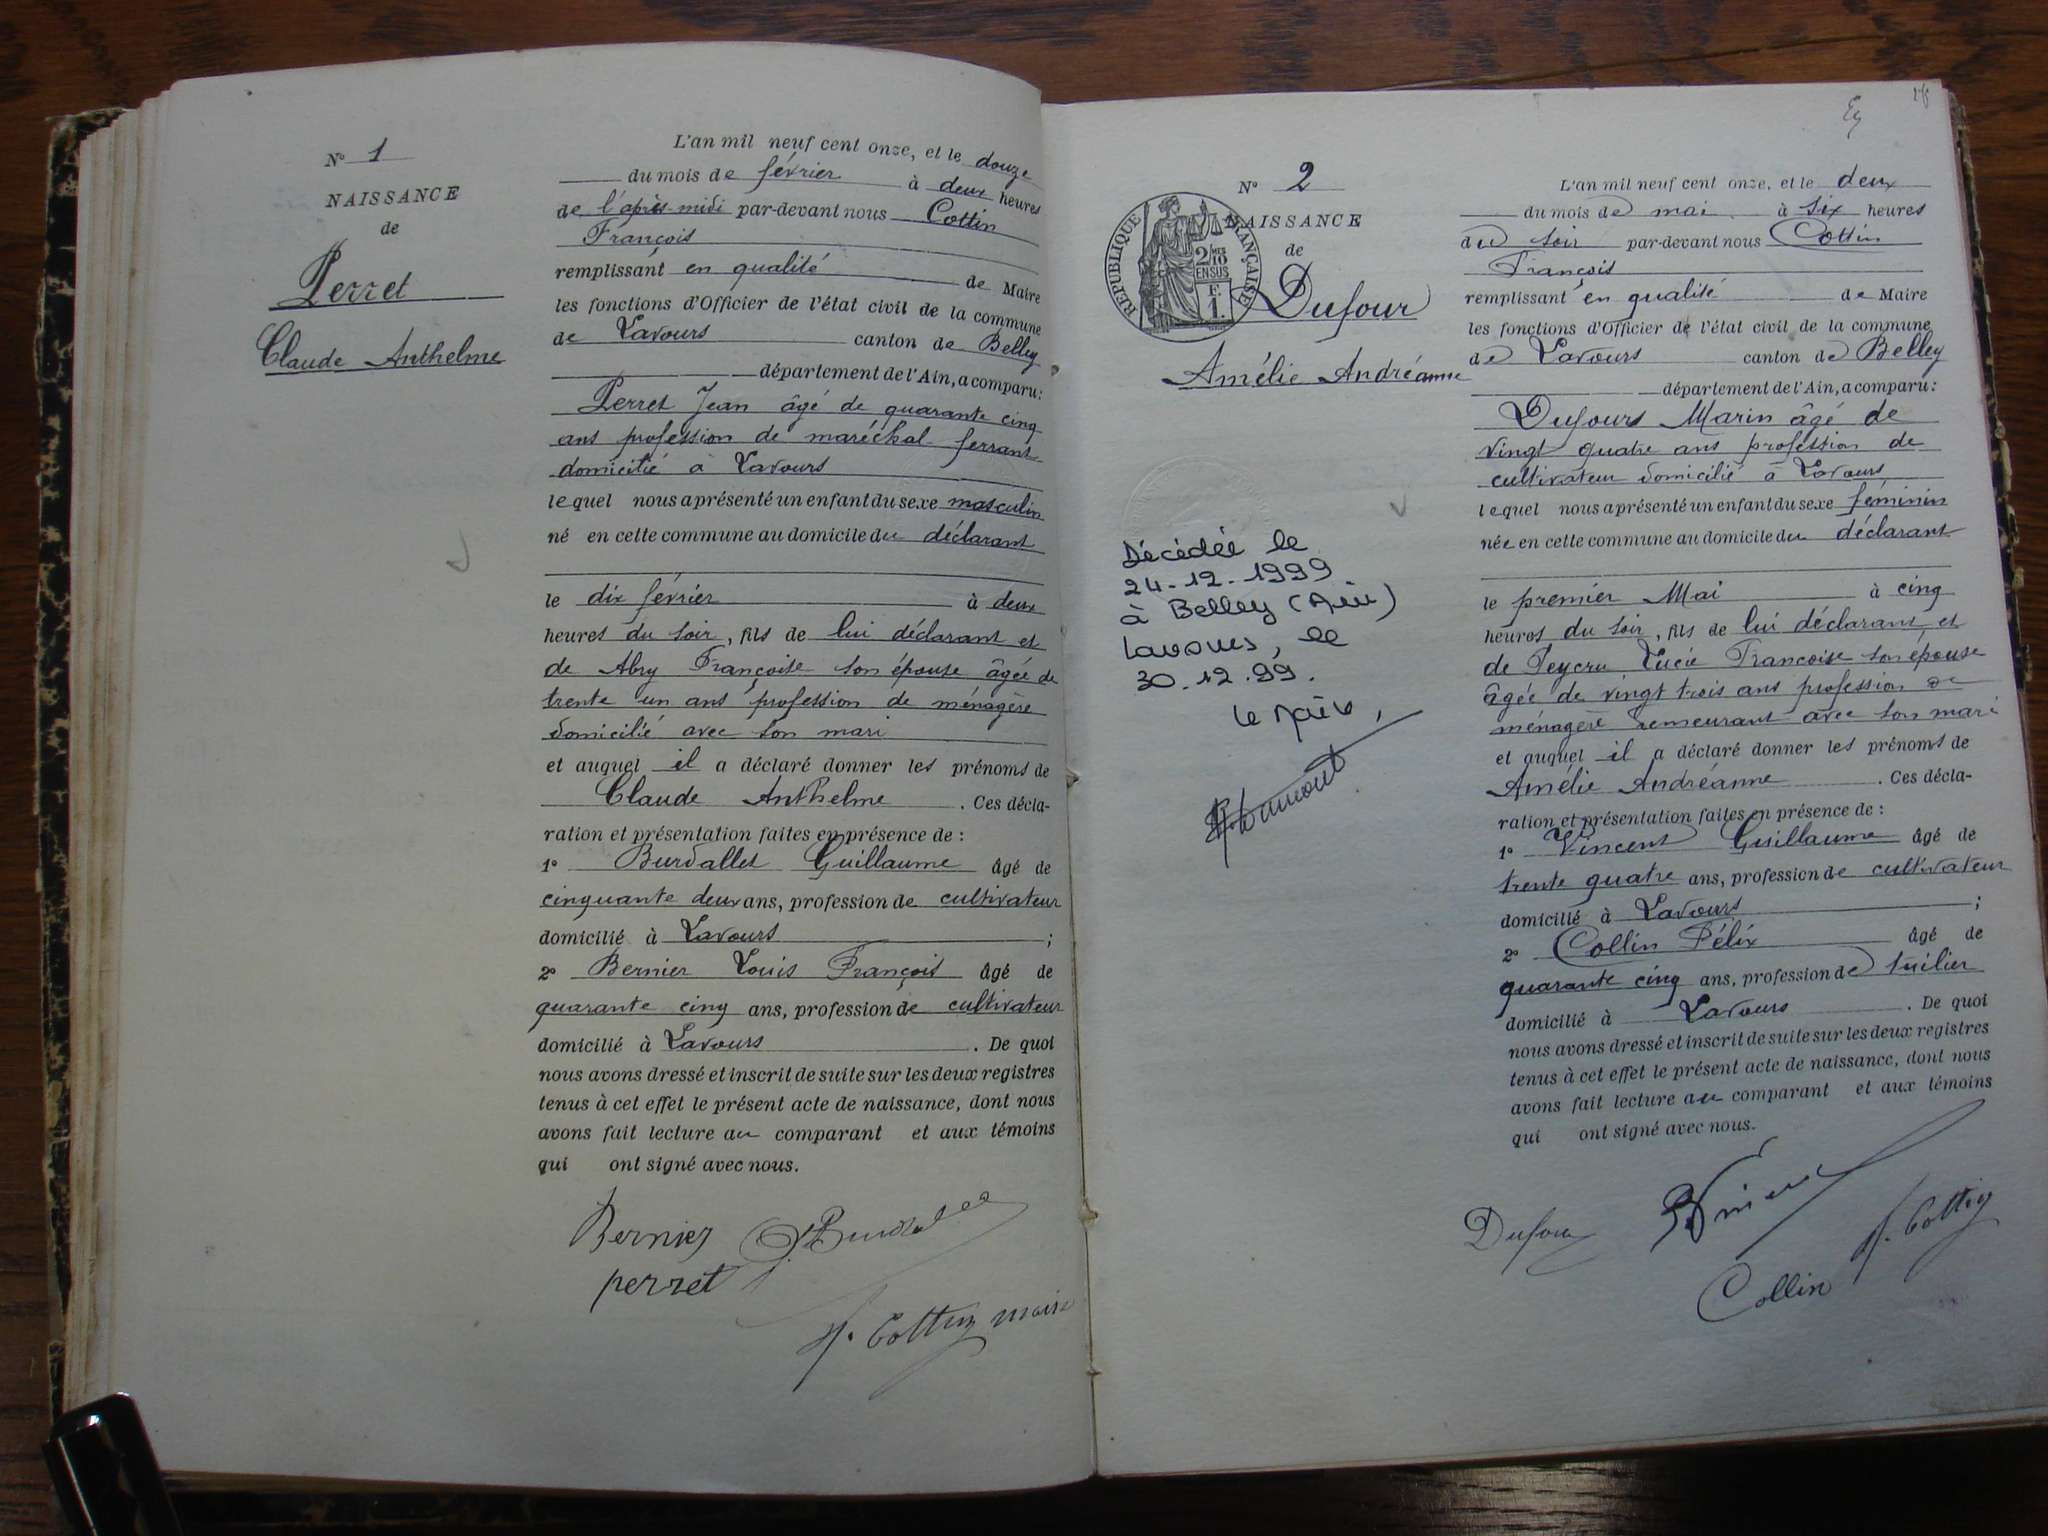 N° 1
NAISSANCE
de
Perret
Claude Anthelme
L'an mil neuf cent onze, et le douze
du mois de février à deux heures
de l'après-midi par-devant nous Cottin
François
remplissant en qualité de Maire
les fonctions d'Officier de l'état civil de la commune
de Lavours canton de Belley
département de l'Ain, a comparu:
Perret Jean âgé de quarante cinq
ans profession de maréchal-ferrant
domicilié à Lavours
lequel nous a présenté un enfant du sexe masculin
né en cette commune au domicile du déclarant
le dix février à deux
heures du soir, fils de lui déclarant et
de Abry Françoise son épouse âgée de
trente un ans profession de ménagère
domicilié avec son mari
et auquel il a déclaré donner les prénoms de
Claude Anthelme . Ces décla-
ration et présentation faites en présence de :
1° Burdallet Guillaume âgé de
cinquante deux ans, profession de cultivateur
domicilié à Lavours ;
2° Bernier Louis François âgé de
quarante cinq ans, profession de cultivateur
domicilié à Lavours . De quoi
nous avons dressé et inscrit de suite sur les deux registres
tenus à cet effet le présent acte de naissance, dont nous
avons fait lecture au comparant et aux témoins
qui ont signé avec nous.
Bernier
perret
f. Cottin maire
N° 2
NAISSANCE
de
RÉPUBLIQUE FRANÇAISE
2/10
EN SUS
F.
1.
Dufour
Amélie Andréanne
Décédée le
24-12-1999
à Belley (Ain)
Lavours, le
30.12.99.
Le Maire,
L'an mil neuf cent onze, et le deux
du mois de mai à six heures
du soir par-devant nous Cottin
François
remplissant en qualité de Maire
les fonctions d'Officier de l'état civil de la commune
de Lavours canton de Belley
département de l'Ain, a comparu:
Dufours Marin âgé de
vingt quatre ans profession de
cultivateur domicilié à Lavours
lequel nous a présenté un enfant du sexe féminin
née en cette commune au domicile du déclarant
le premier Mai à cinq
heures du soir, fils de lui déclarant et
de Peycru Lucie Francoise son épouse
âgée de vingt trois ans profession de
ménagère demeurant avec son mari
et auquel il a déclaré donner les prénoms de
Amélie Andréanne . Ces décla-
ration et présentation faites en présence de :
1° Vincent Guillaume âgé de
trente quatre ans, profession de cultivateur
domicilié à Lavours ;
2° Collin Félix âgé de
quarante cinq ans, profession de tuilier
domicilié à Lavours . De quoi
nous avons dressé et inscrit de suite sur les deux registres
tenus à cet effet le présent acte de naissance, dont nous
avons fait lecture au comparant et aux témoins
qui ont signé avec nous.
Dufour
f. Cottin
Collin